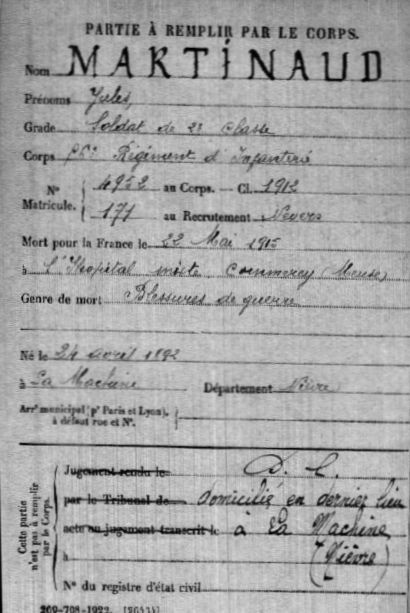 PARTIE À REMPLIR PAR LE CORPS.
Nom MARTINAUD
Prénoms Jules
Grade Soldat de 2e classe
Corps Régiment d'Infanterie
N° 4952 au Corps. — Cl. 1912
Matricule. 171 au Recrutement Nevers
Mort pour la France le 22 Mai 1915
à l'Hopital mixte Commercy (Meuse)
Genre de mort Blessures de guerre
Né le 24 avril 1892
à La Machine Département Nièvre
Arrt municipal (pr Paris et Lyon), à défaut rue et N°.
Cette partie n'est pas à remplir par le Corps.
Jugement rendu le D. C.
par le Tribunal de domicilié en dernier lieu
acte ou jugement transcrit le à La Machine
à (Nièvre)
N° du registre d'état civil
269-708-1922. [26434]